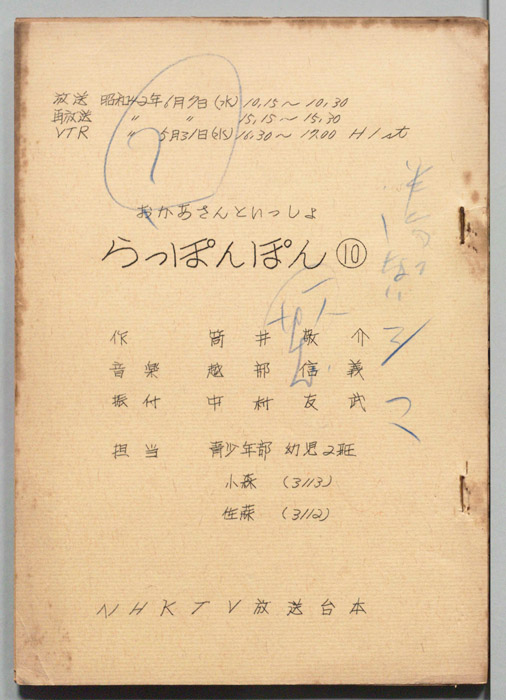 放送 昭和42年6月7日(水) 10.15～10.30
再放送 〃 〃 15.15～15.30
VTR 〃 5月31日(水) 16.30～17.00 H1st
おかあさんといっしょ
らっぽんぽん⑩
作 筒井敬介
音楽 越部信義
振付 中村友武
担当 青少年部 幼児2班
小森 (3113)
佐藤 (3112)
NHKTV放送台本